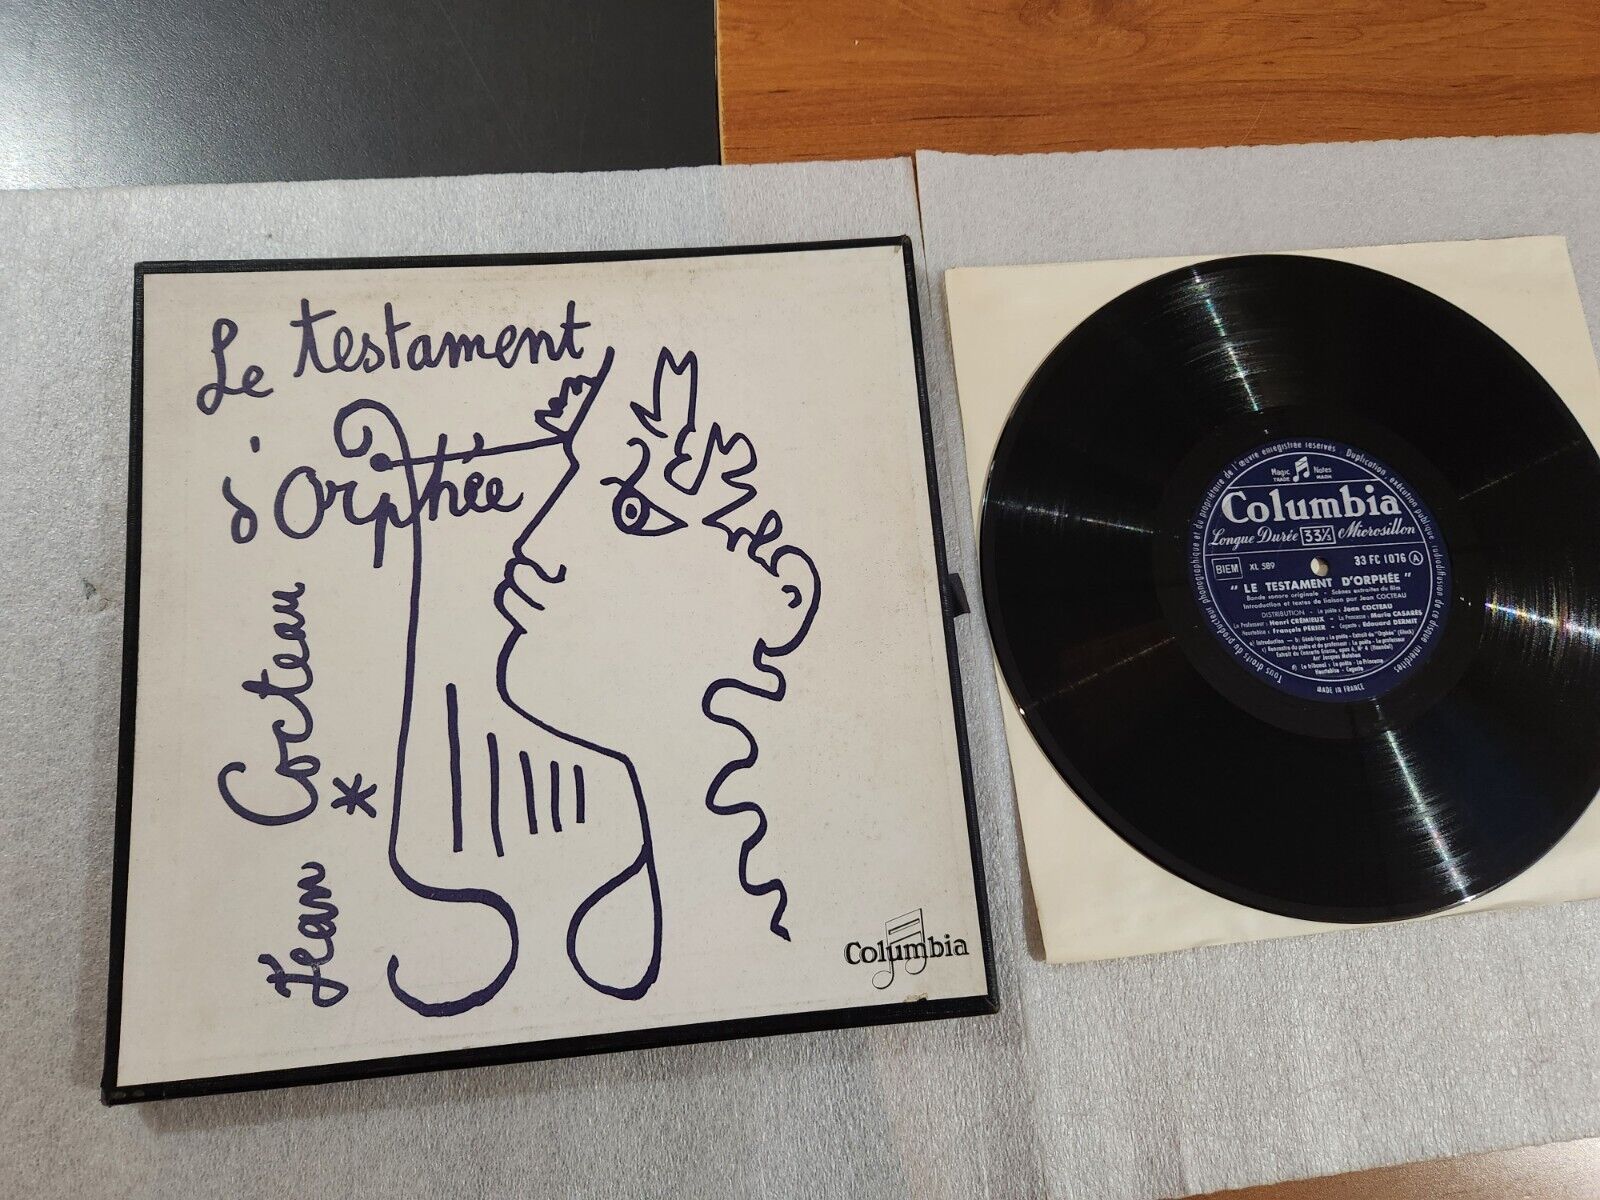 Le testament
d'Orphée
Jean Cocteau *
Columbia
Tous droits du producteur phonographique et du propriétaire de l'œuvre enregistrée réservés · Duplication, exécution publique, radiodiffusion de ce disque interdites
Magic Notes
TRADE MARK
Columbia
Longue Durée 33⅓ Microsillon
BIEM XL 589 33 FC 1076 A
" LE TESTAMENT D'ORPHÉE "
Bande sonore originale - Scènes extraites du film
Introduction et textes de liaison par Jean COCTEAU
DISTRIBUTION - Le poète : Jean COCTEAU
Le Professeur : Henri CRÉMIEUX - La Princesse : Maria CASARÈS
Heurtebise : François PÉRIER - Cégeste : Edouard DERMIT
a) Introduction - b) Générique : Le poète - Extrait de "Orphée" (Gluck)
c) Rencontre du poète et du professeur : Le poète - Le professeur
Extrait du Concerto Grosso, opus 6, N° 4 (Haendel)
d) Le tribunal : Le poète - La Princesse
Heurtebise - Cégeste
MADE IN FRANCE